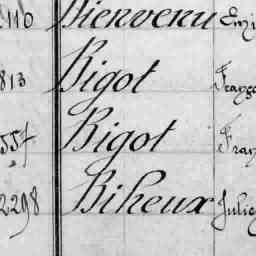 110 Bienvenu Emi
813 Bigot Franço
557 Bigot Fran
2298 Biheux Julie